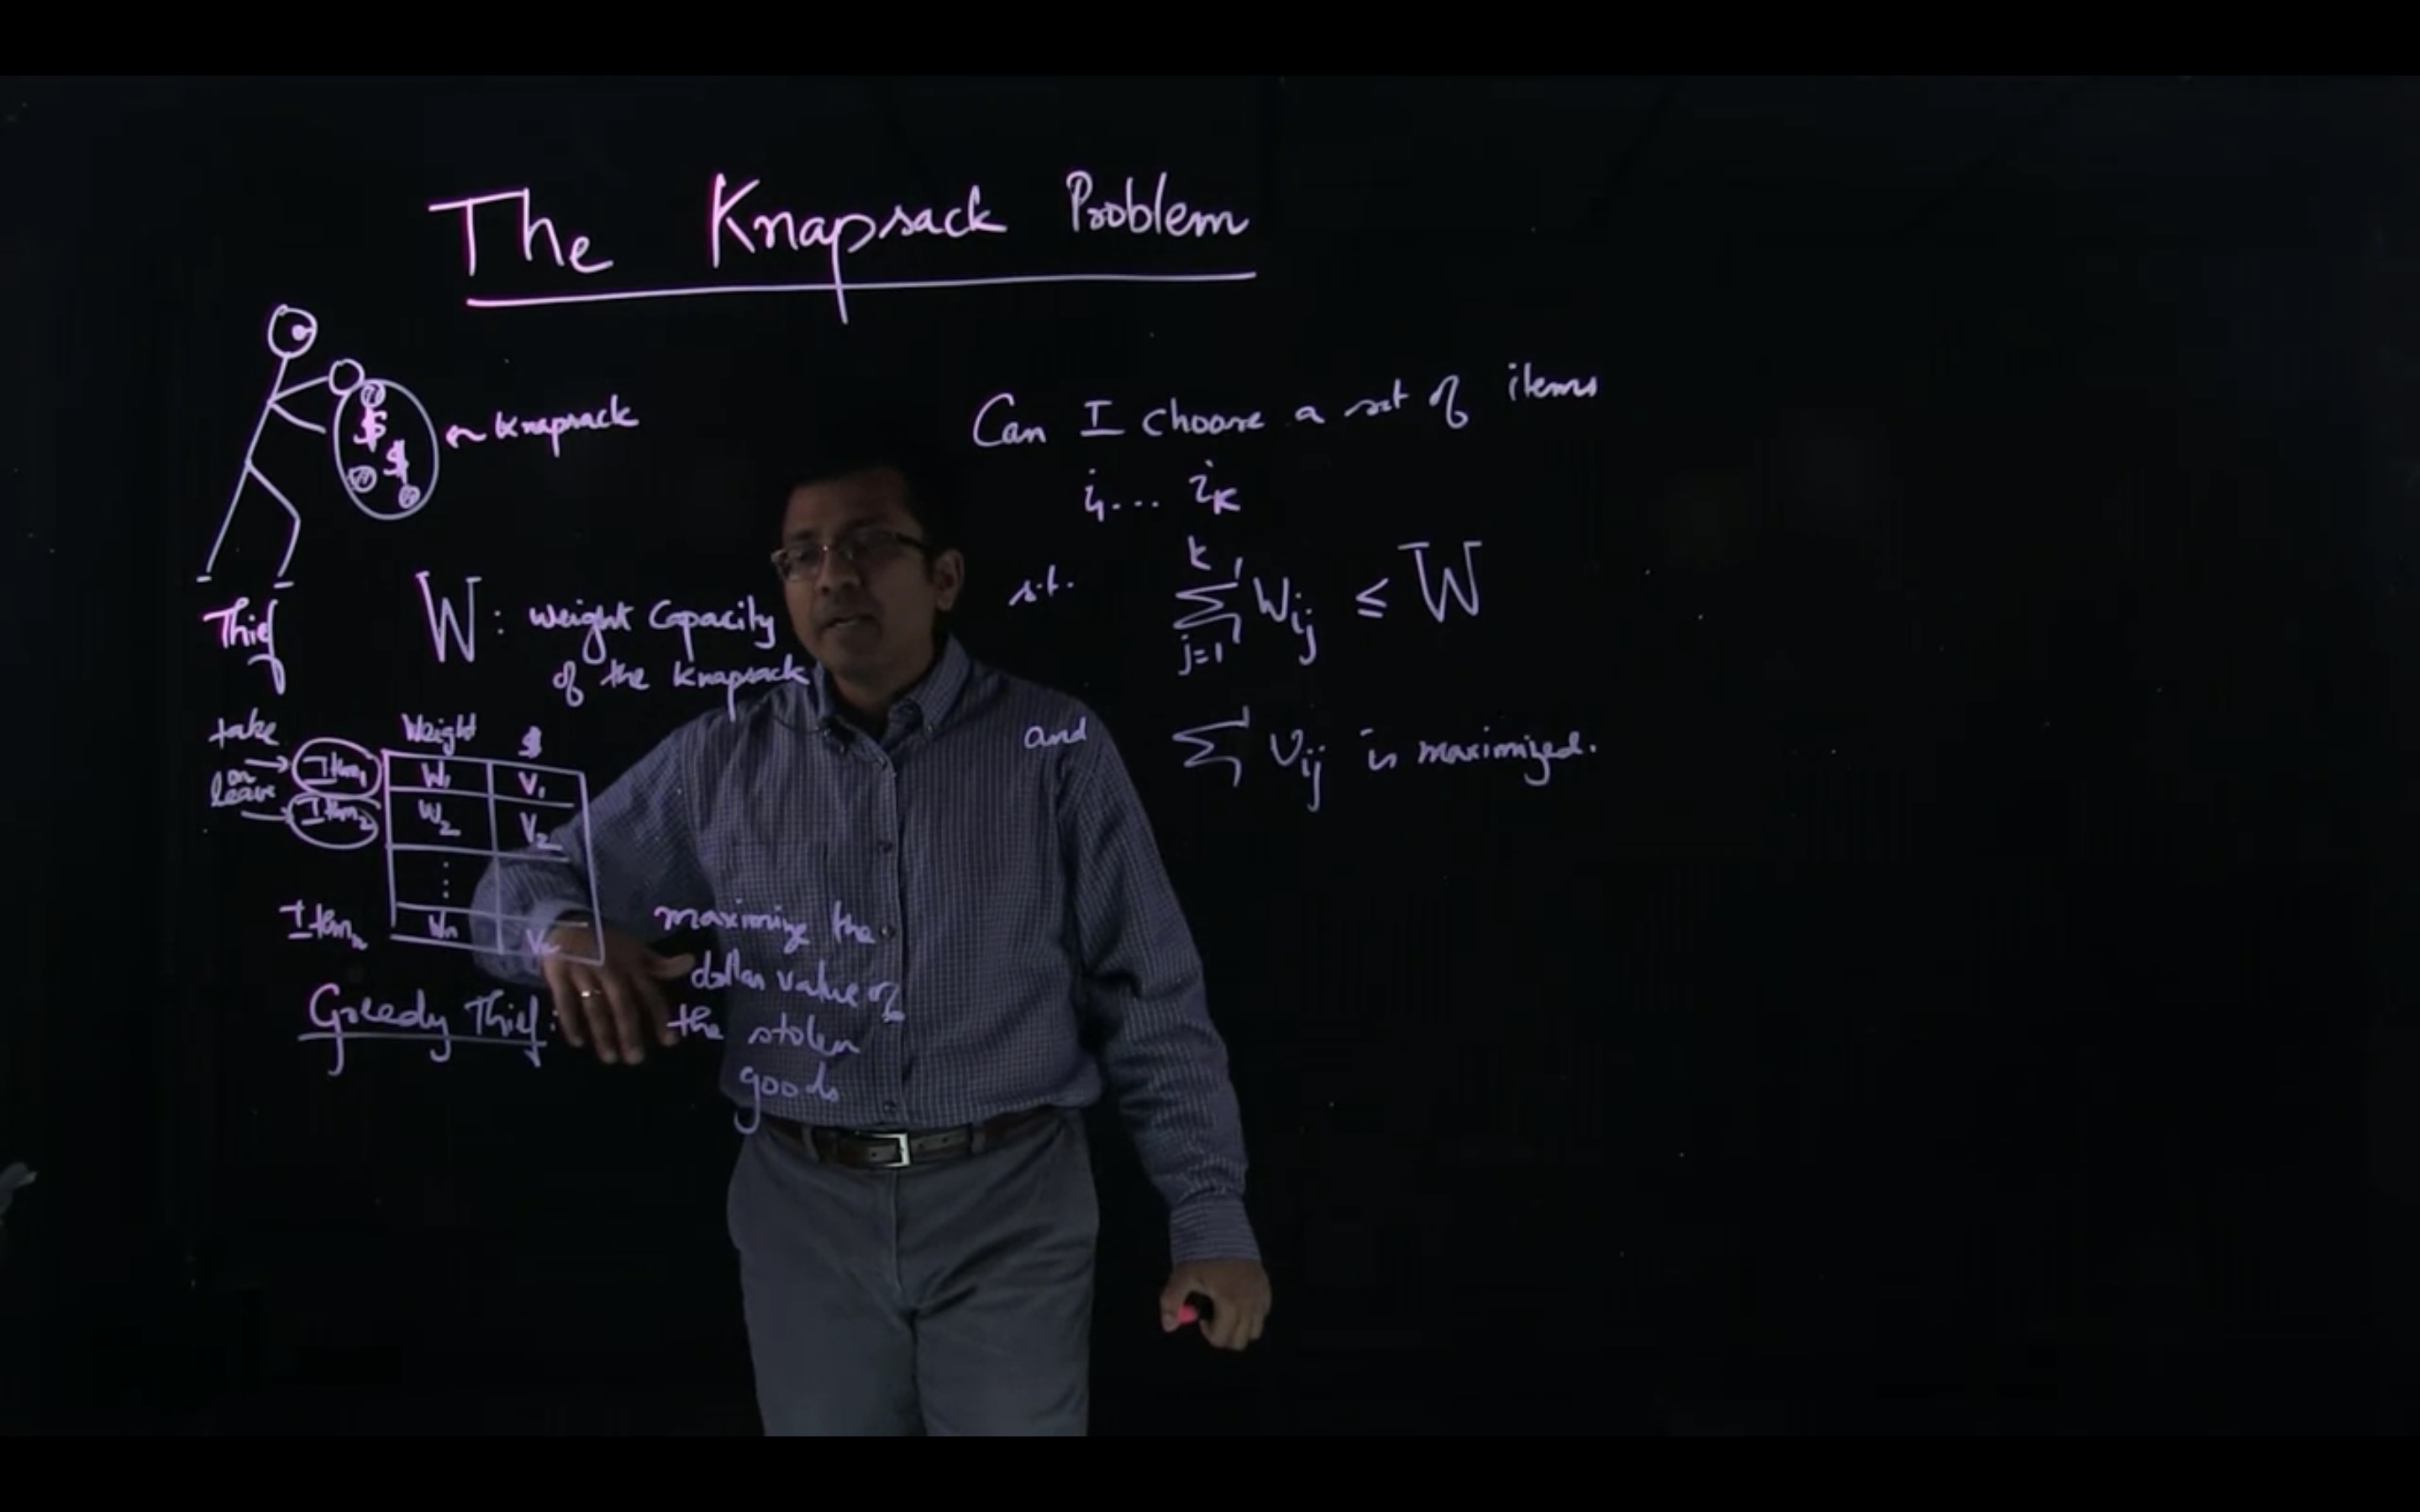 The Knapsack Problem
$
$
Knapsack
Thief
W: Weight Capacity
of the Knapsack
take
or
leave
Weight $
Item1 W1 V1
Item2 W2 V2
⋮
Itemn Wn Vn
Greedy Thief:
maximize the
dollar value of
the stolen
goods
Can I choose a set of items
i1... iK
s.t. k∑j=1 Wij ≤ W
and ∑ Vij is maximized.